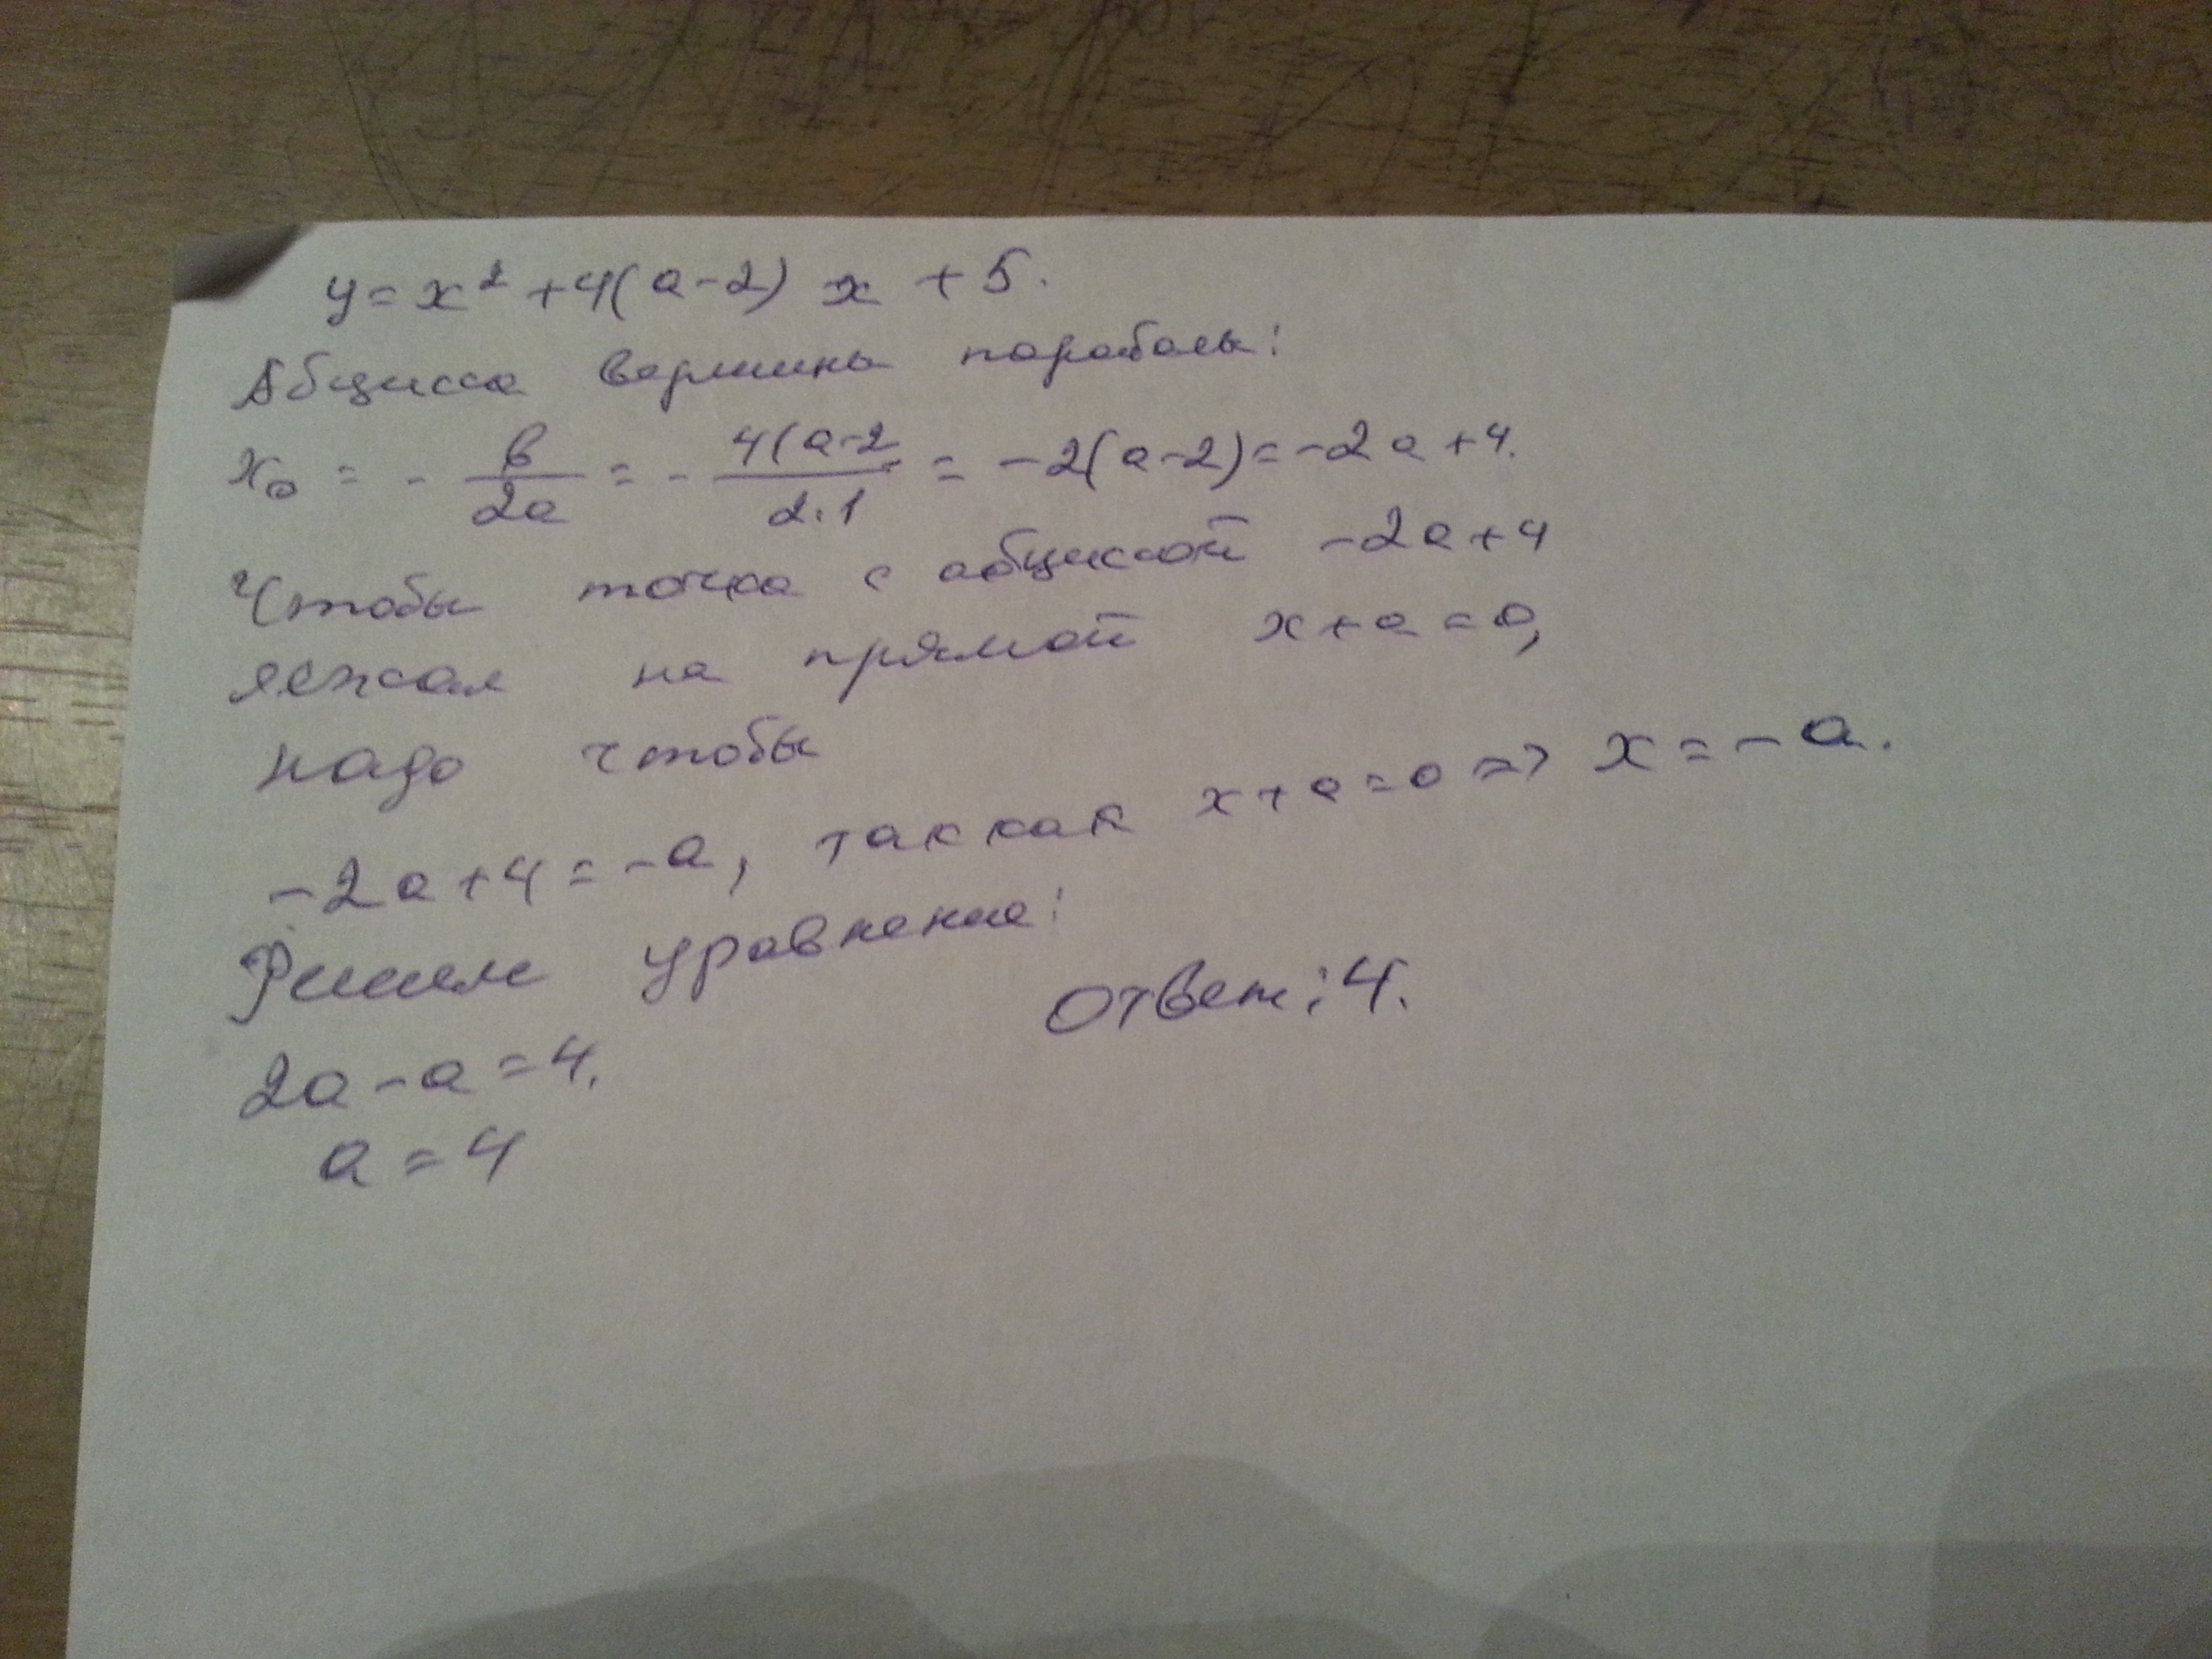 y = x² + 4(a-2) x + 5.
Абцисса вершины параболы:
x₀ = - в/2a = - 4(a-2/2·1 = -2(a-2) = -2a+4.
Чтобы точка с абциссой -2a+4
лежала на прямой x+a=0,
надо чтобы
-2a+4=-a, так как x+a=0 => x=-a.
Решим уравнение:
2a-a=4.
a=4
Ответ: 4.